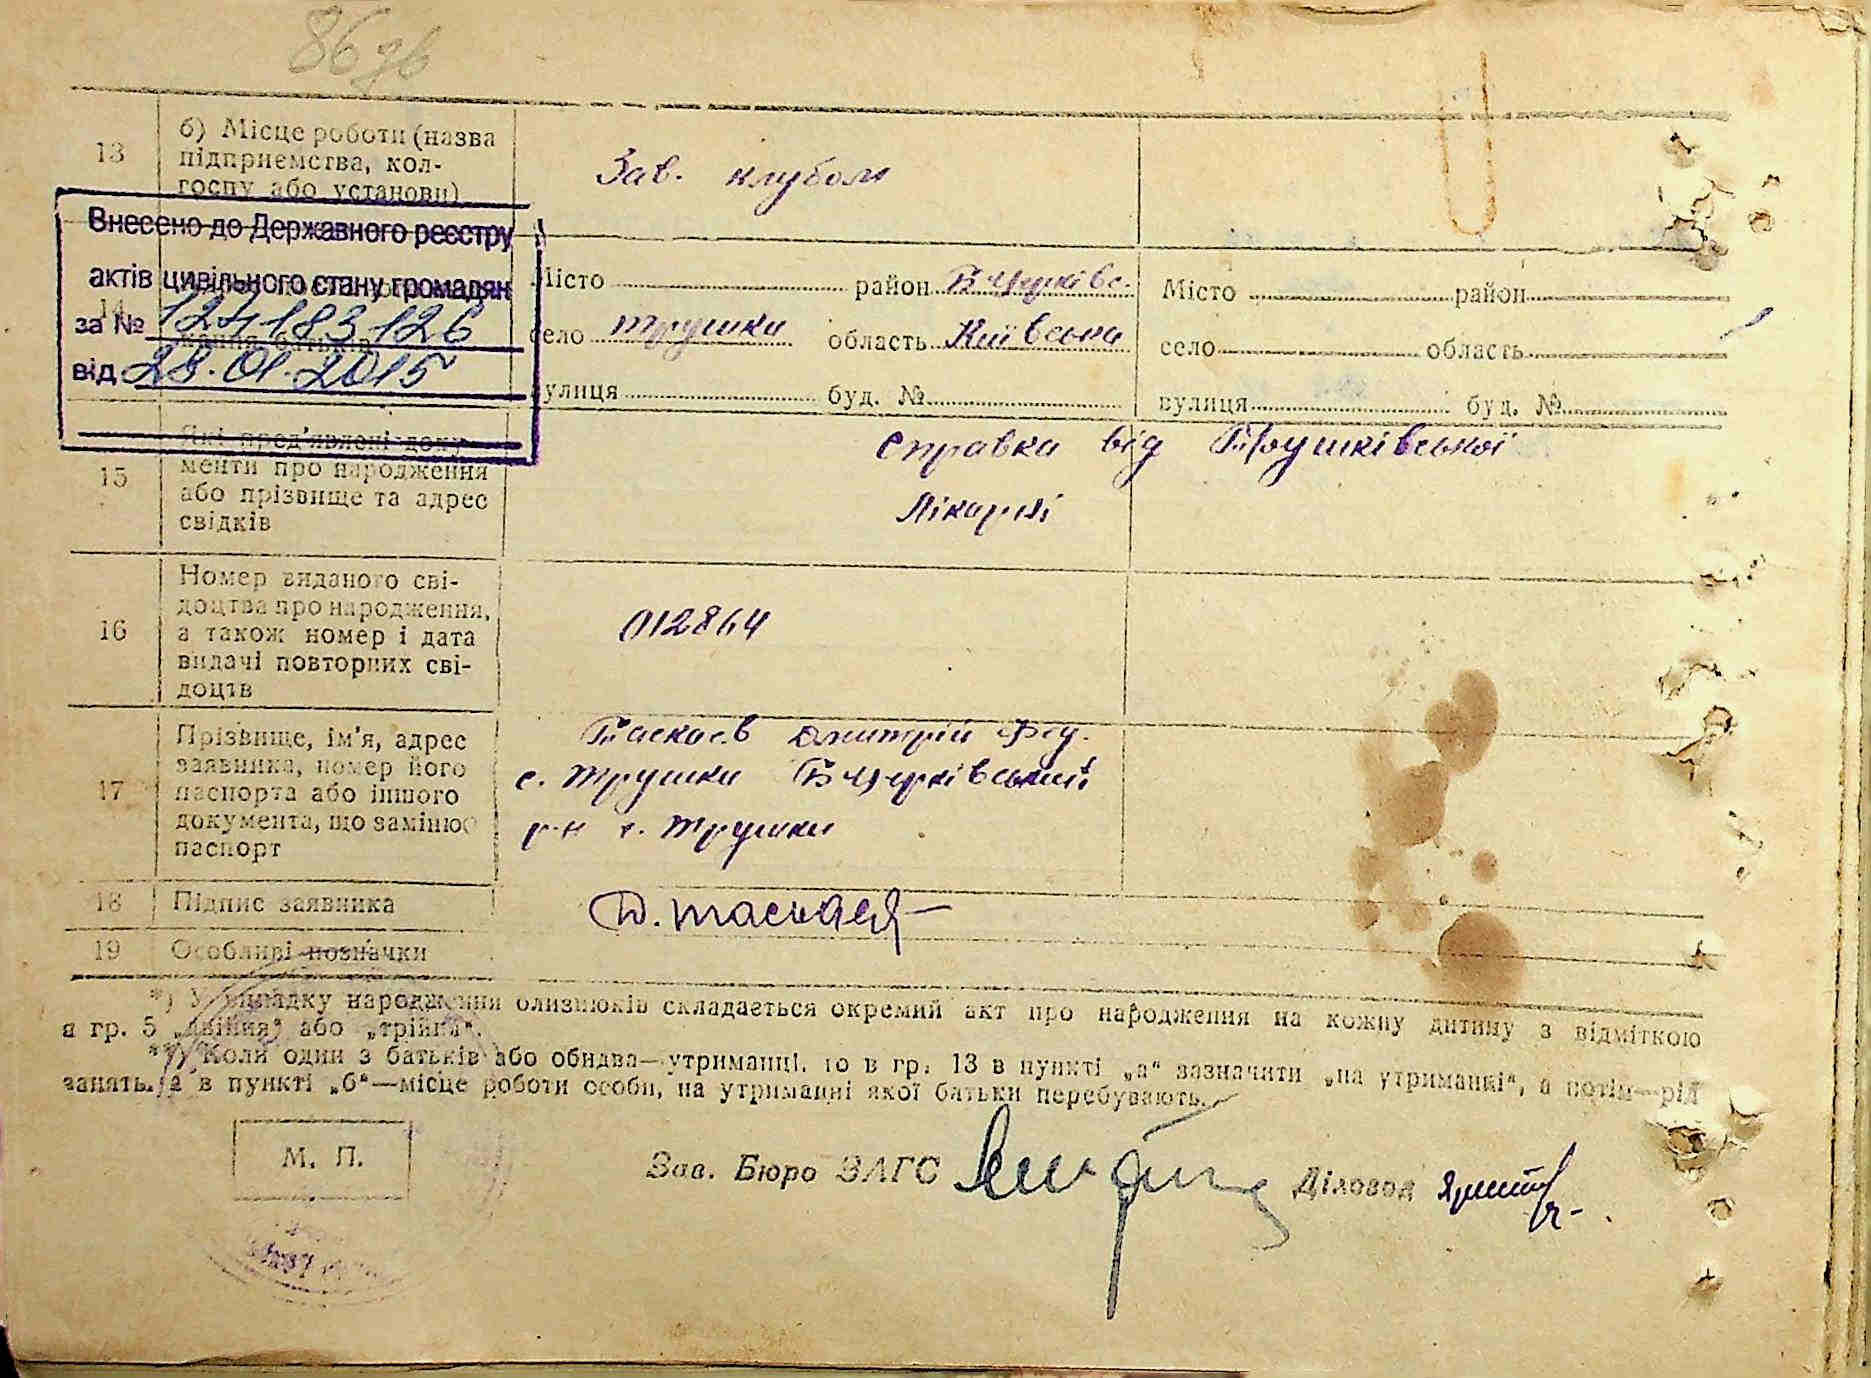 86зв
13
б) Місце роботи (назва
підприємства, кол-
госпу або установи)
Зав. клубом
Внесено до Державного реєстру
актів цивільного стану громадян
за № 124183126
від 28.01.2015
14
Місто район Б Церківс.
село Трушки область Київська
вулиця буд. №
Місто район
село область
вулиця буд. №
15
Які пред'явлені доку-
менти про народження
або прізвище та адрес
свідків
справка від Трушківської
лікарні
16
Номер виданого сві-
доцтва про народження,
а також номер і дата
видачі повторних сві-
доцтв
012864
17
Прізвище, ім'я, адрес
заявника, номер його
паспорта або іншого
документа, що замінює
паспорт
Таскаєв Дмитрій Фед.
с. Трушки Б Церківський
р-н с. Трушки
18
Підпис заявника
Д. Таскаев
19
Особливі позначки
*) У випадку народження близнюків складається окремий акт про народження на кожну дитину з відміткою
в гр. 5 „двійня“ або „трійня“.
**) Коли один з батьків або обидва—утриманці, то в гр. 13 в пункті „а“ зазначити „на утриманні“, а потім—рід
занять, а в пункті „б“—місце роботи особи, на утриманні якої батьки перебувають.
М. П.
Зав. Бюро ЗАГС
Діловод